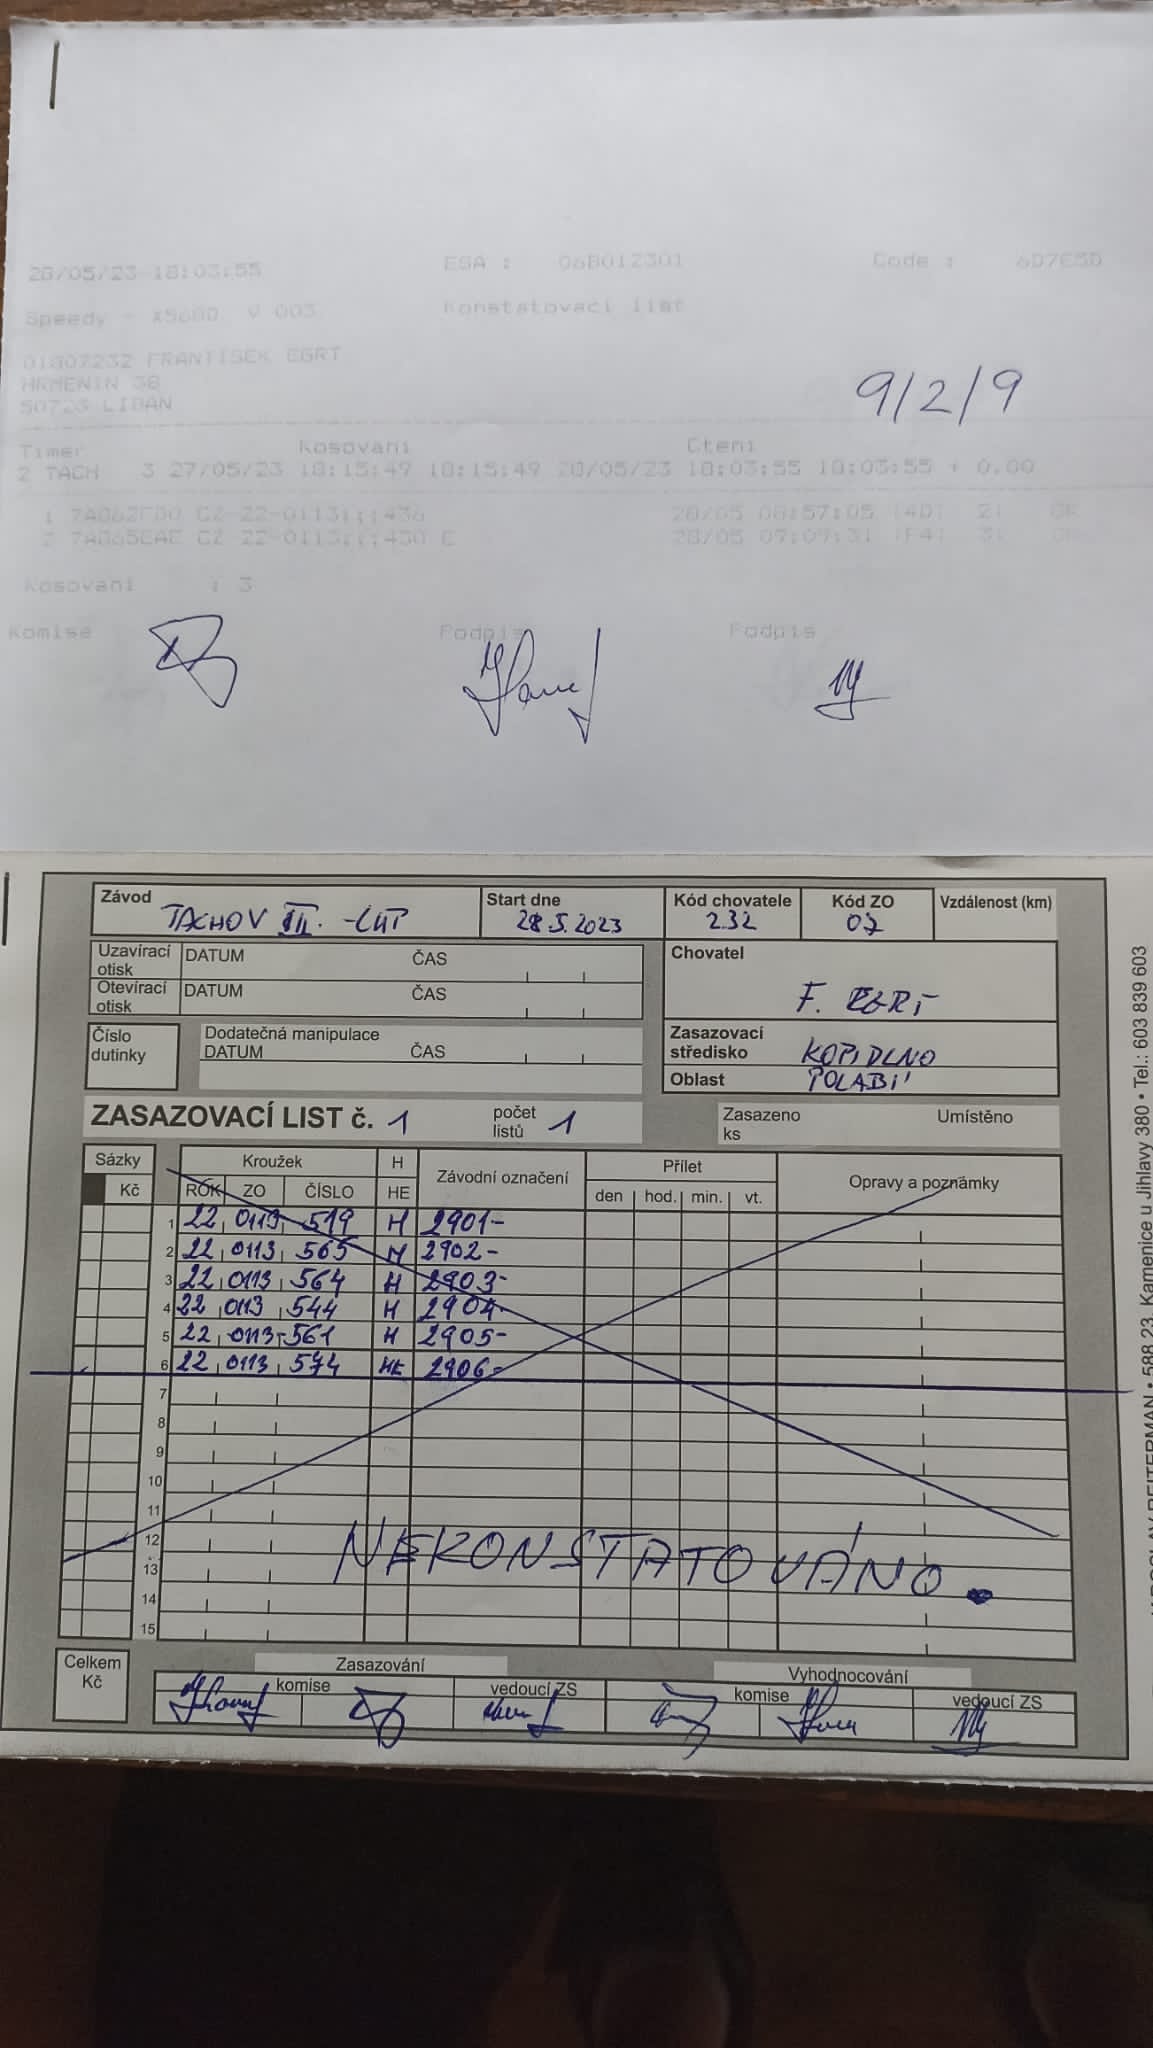 28/05/23 18:03:55 ESA : 06B012301 Code : 6D7E5D
Speedy - X560D V 003 Konstatovaci list
01807232 FRANTISEK EGRT
HRMENIN 38
50723 LIBAN
9/2/9
Timer Kosovani Cteni
2 TACH 3 27/05/23 18:15:49 18:15:49 28/05/23 18:03:55 18:03:55 + 0.00
1 CZ-22-0113;;;436 28/05 08:57:05
2 CZ 22-0113;;;430 E 28/05 09:09:31
Kosovani : 3
Komise Podpis Podpis
Závod Start dne Kód chovatele Kód ZO Vzdálenost (km)
TACHOV III. - 28.5.2023 232 07
Uzavírací otisk DATUM ČAS Chovatel
Otevírací otisk DATUM ČAS F. EGRT
Číslo dutinky Dodatečná manipulace DATUM ČAS
Zasazovací středisko KOPIDLNO
Oblast POLABÍ
ZASAZOVACÍ LIST č. 1 počet listů 1 Zasazeno ks Umístěno
Sázky Kroužek H Závodní označení Přílet Opravy a poznámky
Kč ROK ZO ČÍSLO HE den hod. min. vt.
1 22 0113 519 H 2901-
2 22 0113 565 H 2902-
3 22 0113 564 H 2903-
4 22 0113 544 H 2904-
5 22 0113-561 H 2905-
6 22 0113 574 HE 2906-
7
8
9
10
11
12
13
14
15
NEKONSTATOVÁNO.
Celkem Kč Zasazování Vyhodnocování
komise vedoucí ZS komise vedoucí ZS
588 23 Kamenice u Jihlavy 380 • Tel.: 603 839 603